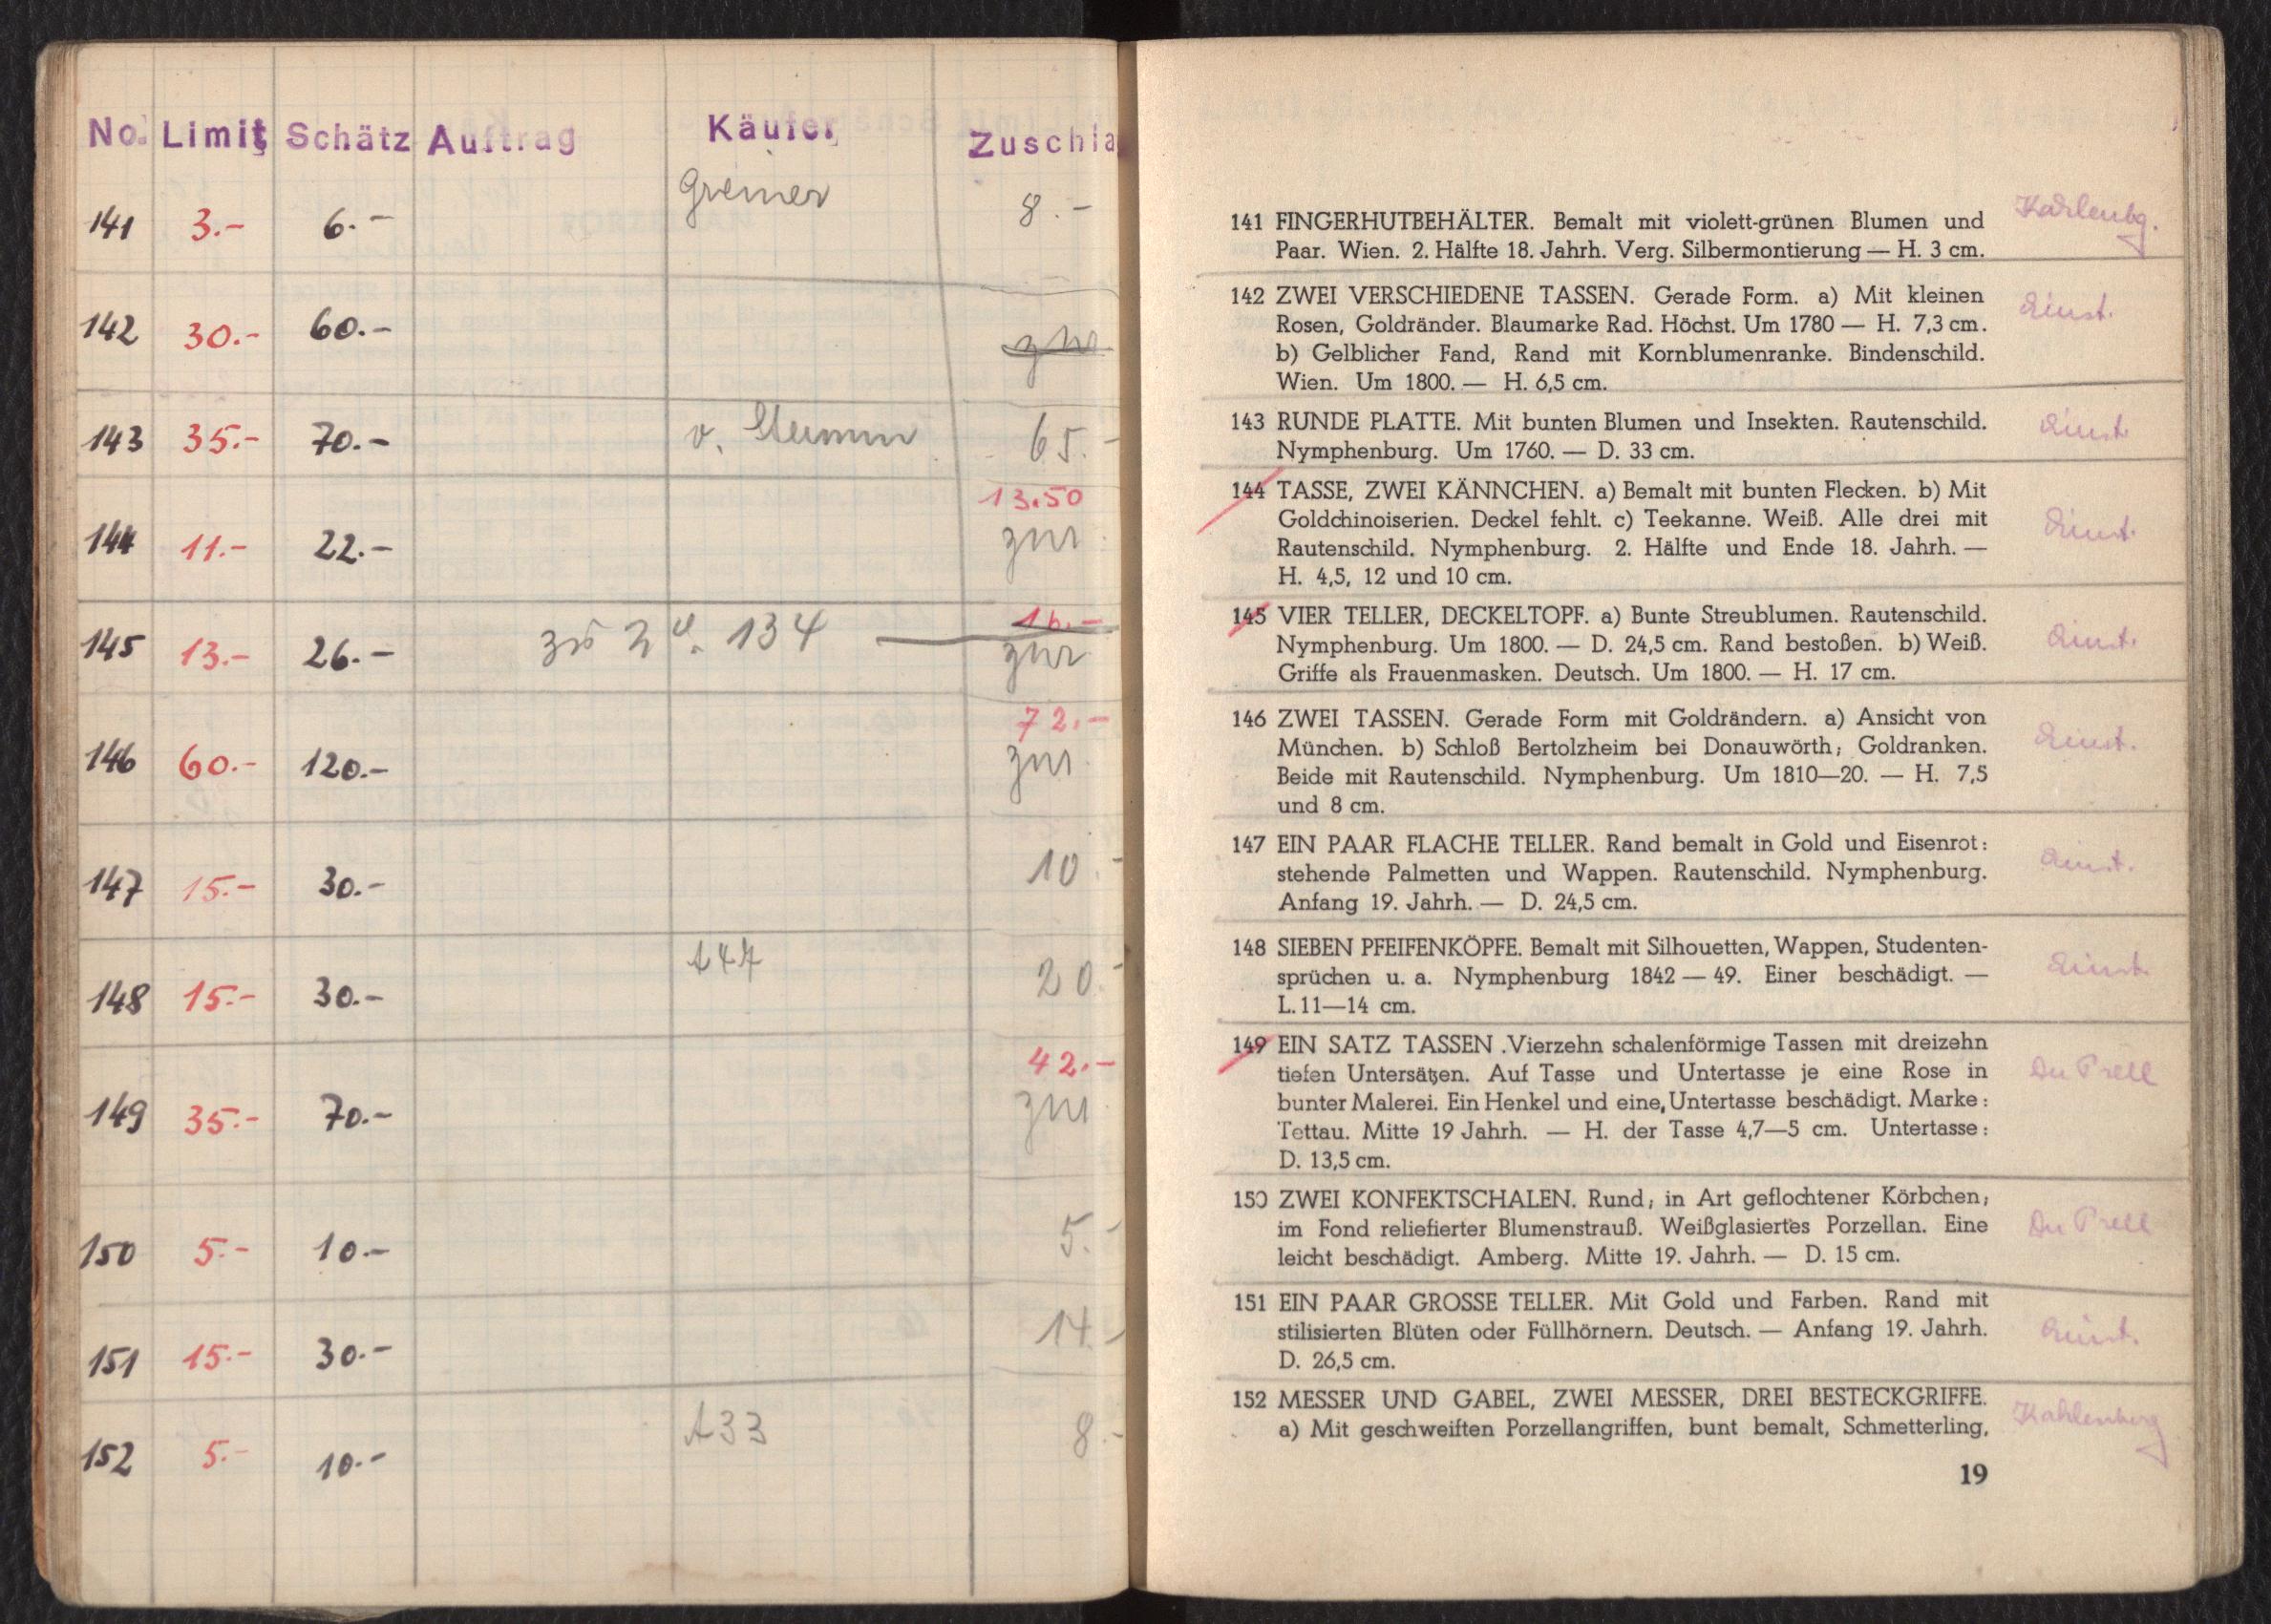 No. Limit Schätz Auftrag Käufer Zuschla
141 3.- 6.- Greiner 8.-
142 30.- 60.- zur
143 35.- 70.- v. 65.-
13.50
144 11.- 22.- zur
16.-
145 13.- 26.- 134 zur
72.-
146 60.- 120.- zur
147 15.- 30.- 10.-
148 15.- 30.- A47 20.-
42.-
149 35.- 70.- zur
150 5.- 10.- 5.-
151 15.- 30.- 14.-
152 5.- 10.- A33 8.-
141 FINGERHUTBEHÄLTER. Bemalt mit violett-grünen Blumen und
Paar. Wien. 2. Hälfte 18. Jahrh. Verg. Silbermontierung — H. 3 cm.
142 ZWEI VERSCHIEDENE TASSEN. Gerade Form. a) Mit kleinen
Rosen, Goldränder. Blaumarke Rad. Höchst. Um 1780 — H. 7,3 cm.
b) Gelblicher Fand, Rand mit Kornblumenranke. Bindenschild.
Wien. Um 1800. — H. 6,5 cm.
143 RUNDE PLATTE. Mit bunten Blumen und Insekten. Rautenschild.
Nymphenburg. Um 1760. — D. 33 cm.
144 TASSE, ZWEI KÄNNCHEN. a) Bemalt mit bunten Flecken. b) Mit
Goldchinoiserien. Deckel fehlt. c) Teekanne. Weiß. Alle drei mit
Rautenschild. Nymphenburg. 2. Hälfte und Ende 18. Jahrh. —
H. 4,5, 12 und 10 cm.
145 VIER TELLER, DECKELTOPF. a) Bunte Streublumen. Rautenschild.
Nymphenburg. Um 1800. — D. 24,5 cm. Rand bestoßen. b) Weiß.
Griffe als Frauenmasken. Deutsch. Um 1800. — H. 17 cm.
146 ZWEI TASSEN. Gerade Form mit Goldrändern. a) Ansicht von
München. b) Schloß Bertolzheim bei Donauwörth; Goldranken.
Beide mit Rautenschild. Nymphenburg. Um 1810—20. — H. 7,5
und 8 cm.
147 EIN PAAR FLACHE TELLER. Rand bemalt in Gold und Eisenrot:
stehende Palmetten und Wappen. Rautenschild. Nymphenburg.
Anfang 19. Jahrh. — D. 24,5 cm.
148 SIEBEN PFEIFENKÖPFE. Bemalt mit Silhouetten, Wappen, Studenten-
sprüchen u. a. Nymphenburg 1842 — 49. Einer beschädigt. —
L. 11—14 cm.
149 EIN SATZ TASSEN .Vierzehn schalenförmige Tassen mit dreizehn
tiefen Untersätzen. Auf Tasse und Untertasse je eine Rose in
bunter Malerei. Ein Henkel und eine, Untertasse beschädigt. Marke:
Tettau. Mitte 19 Jahrh. — H. der Tasse 4,7—5 cm. Untertasse:
D. 13,5 cm.
Du Prell
150 ZWEI KONFEKTSCHALEN. Rund; in Art geflochtener Körbchen;
im Fond reliefierter Blumenstrauß. Weißglasiertes Porzellan. Eine
leicht beschädigt. Amberg. Mitte 19. Jahrh. — D. 15 cm.
Du Prell
151 EIN PAAR GROSSE TELLER. Mit Gold und Farben. Rand mit
stilisierten Blüten oder Füllhörnern. Deutsch. — Anfang 19. Jahrh.
D. 26,5 cm.
152 MESSER UND GABEL, ZWEI MESSER, DREI BESTECKGRIFFE.
a) Mit geschweiften Porzellangriffen, bunt bemalt, Schmetterling,
Kahlenberg
19